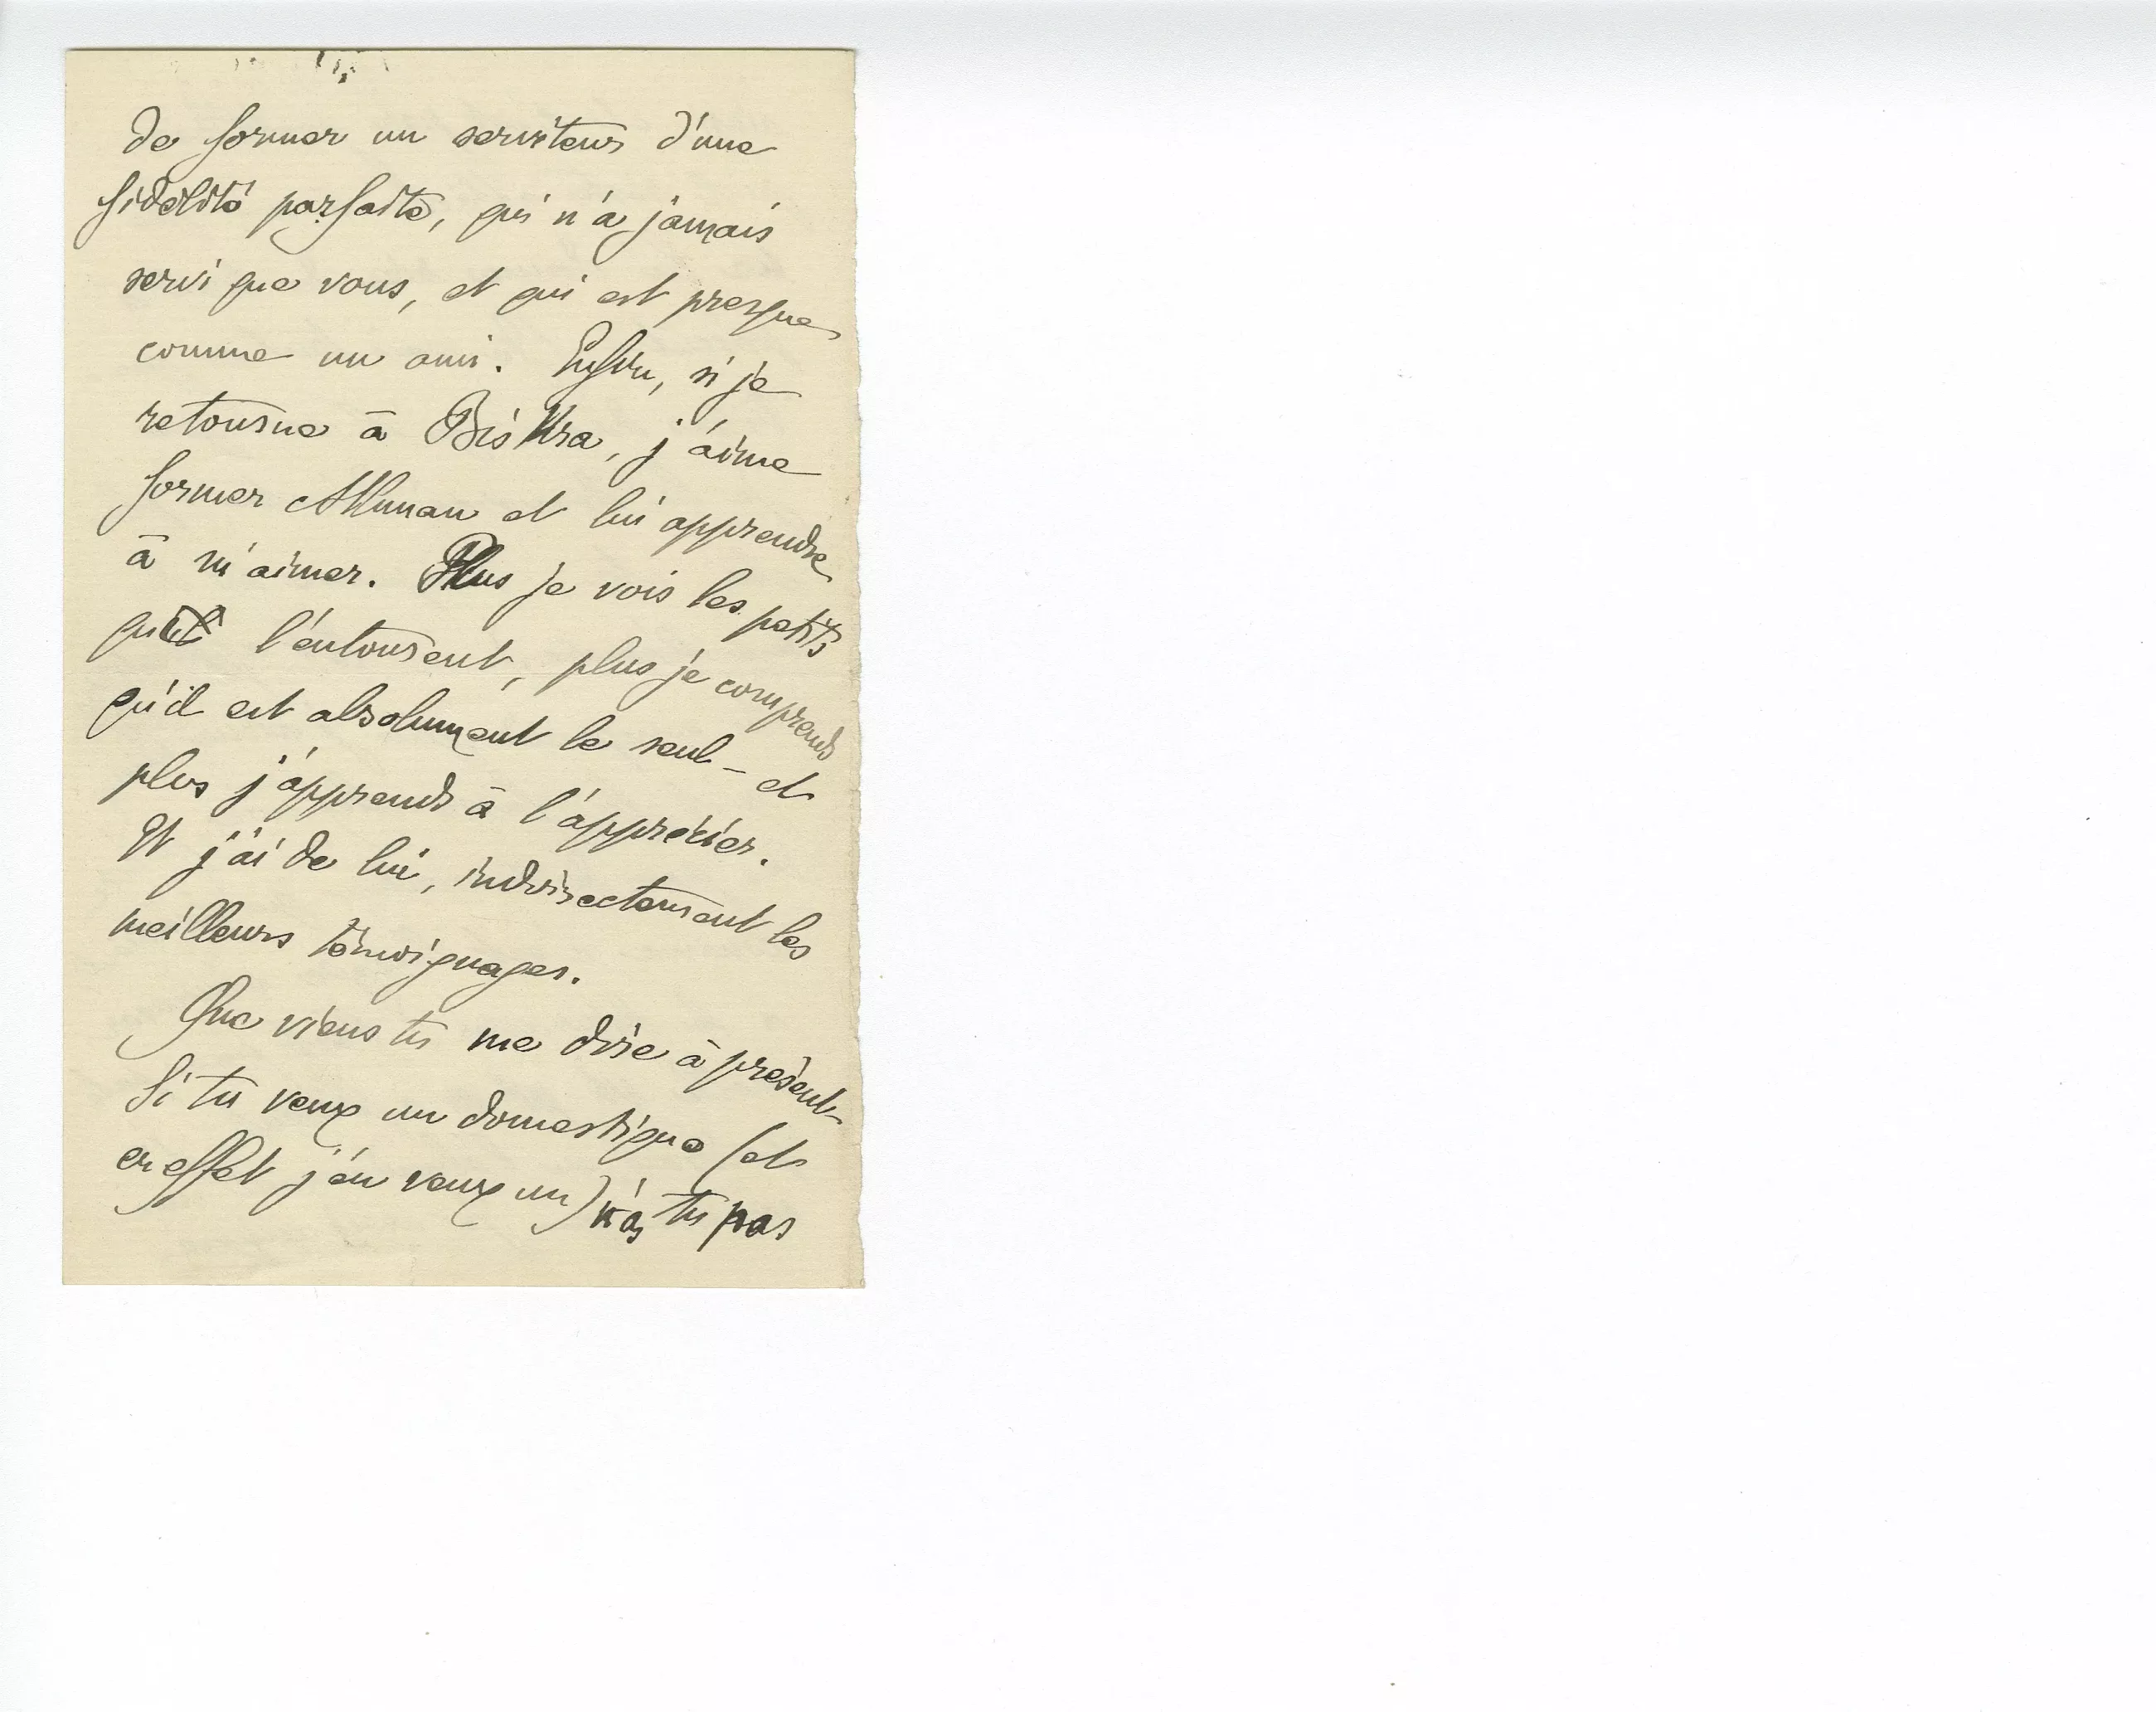 de former un serviteur d'une
fidélité parfaite, qui n'a jamais
servi que vous, et qui est presque
comme un ami. Enfin, si je
retourne à Biskra, j'aime
former Athman et lui apprendre
à m'aimer. Plus je vois les petits
qui l'entourent, plus je comprends
qu'il est absolument le seul – et
plus j'apprends à l'apprécier.
Et j'ai de lui, indirectement les
meilleurs témoignages.
Que viens tu me dire à présent
Si tu veux un domestique (et
en effet j'en veux un) n'as tu pas